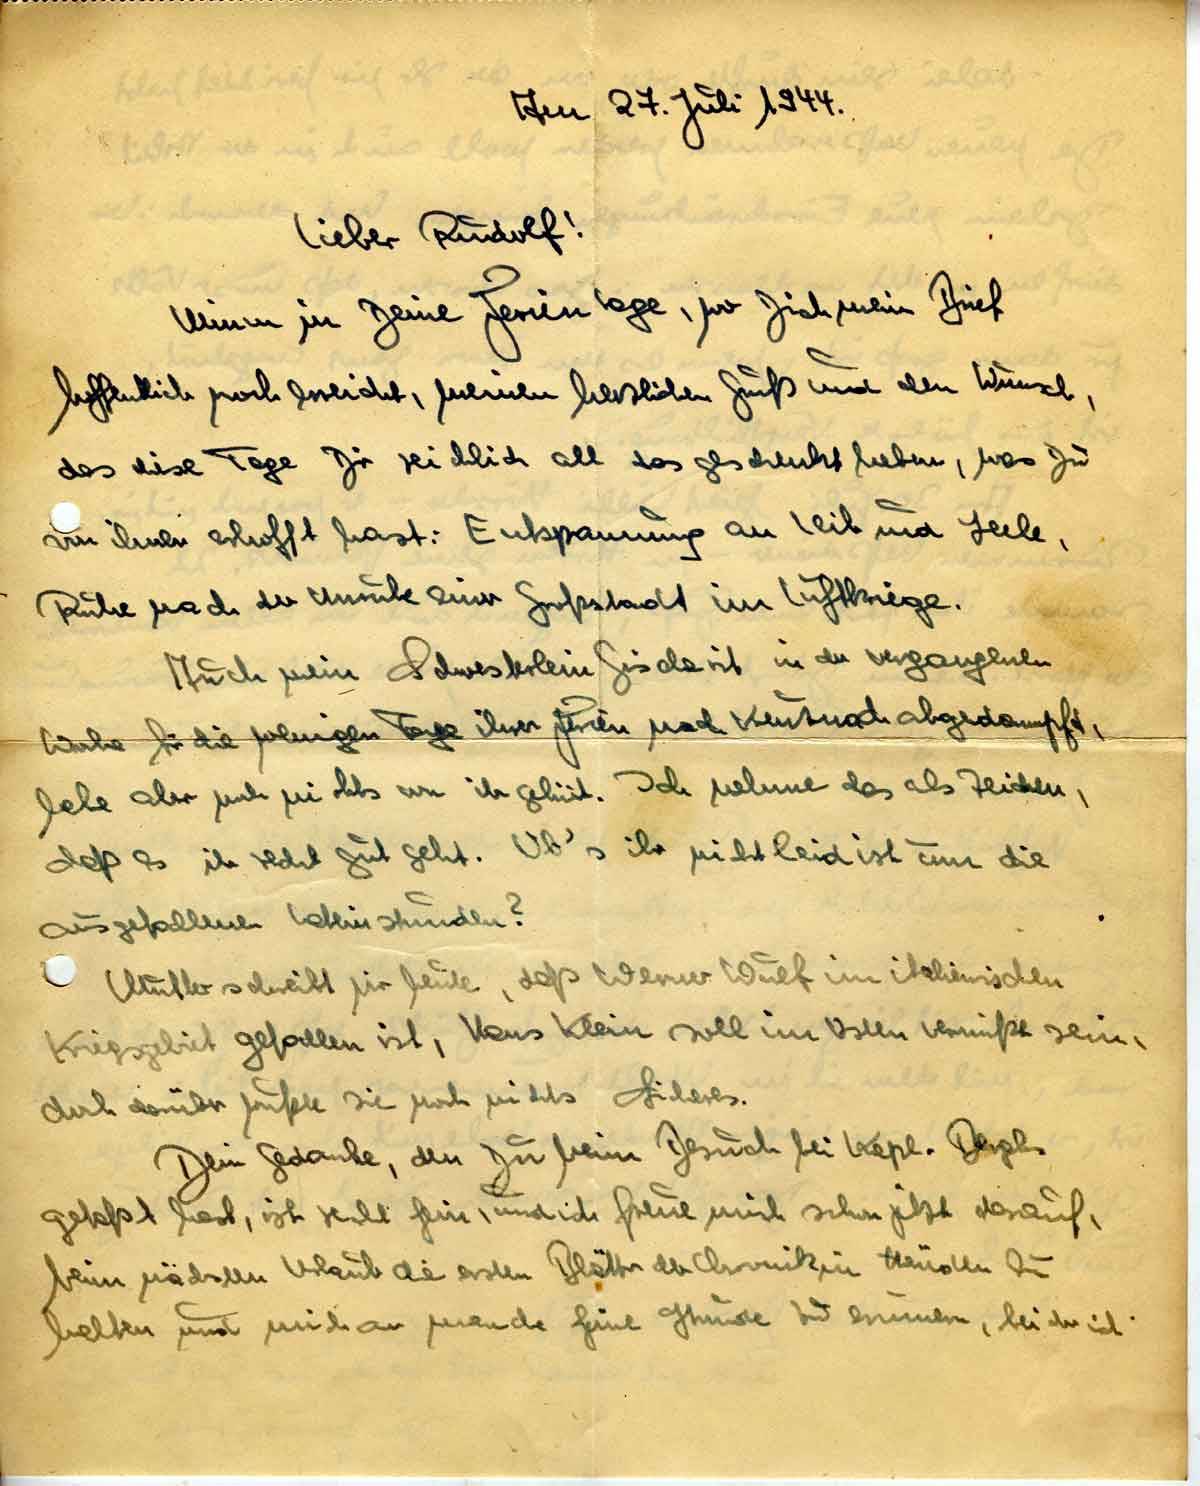 Am 27. Juli 1944.
Lieber Rudolf!
Nimm in Deine Ferientage, wo Dich mein Brief
hoffentlich noch erreicht, meinen herzlichen Gruß und den Wunsch,
das diese Tage Dir reichlich all das geschenkt haben, was Du
von ihnen erhofft hast: Entspannung an Leib und Seele,
Ruhe nach der Unruhe einer Großstadt im Luftkriege.
Auch mein Schwesterlein Gisela ist in der vergangenen
Woche für die wenigen Tage ihrer Ferien nach abgedampft,
habe aber noch nichts von ihr gehört. Ich nehme das als Zeichen,
daß es ihr recht gut geht. Ob's ihr nicht leid ist um die
ausgefallenen Lateinstunden?
Mutter schreibt mir heute, daß Werner Wulf im italienischen
Kriegsgebiet gefallen ist, Hans Klein soll im Osten vermißt sein,
doch darüber wußte sie noch nichts Sicheres.
Dein Gedanke, den Du beim Besuch bei Kapl.
gefaßt hast, ist recht fein, und ich freue mich schon jetzt darauf,
beim nächsten Urlaub die ersten Blätter der Chronik in Händen zu
halten und mich an manche feine Stunde zu erinnern, bei der ich